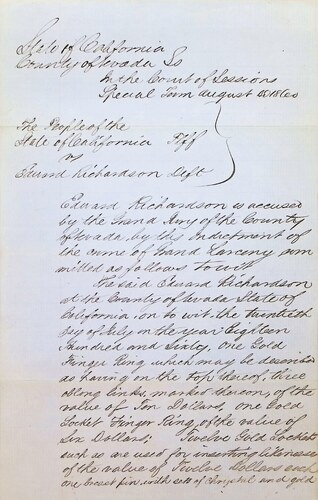 State of California
County of Nevada Ss
In the Court of Sessions
Special Term August 1860
The People of the
State of California Plff
vs
Edward Richardson Deft
Edward Richardson is accused
by the Grand Jury of the County
of Nevada, by this Indictment of
the crime of Grand Larceny com
mitted as follows to wit
The said Edward Richardson
at the County of Nevada State of
California, on to wit, the twentieth
day of July in the year Eighteen
Hundred and Sixty, one Gold
Finger Ring, which may be described
as having on the top thereof, three
oblong links, marked thereon, of the
value of Ten Dollars, one Gold
Locket Finger Ring, of the value of
Six Dollars; Twelve Gold Lockets
such as are used for inserting likenesses
of the value of Twelve Dollars each
one breast pin, with sett of Crystal and gold